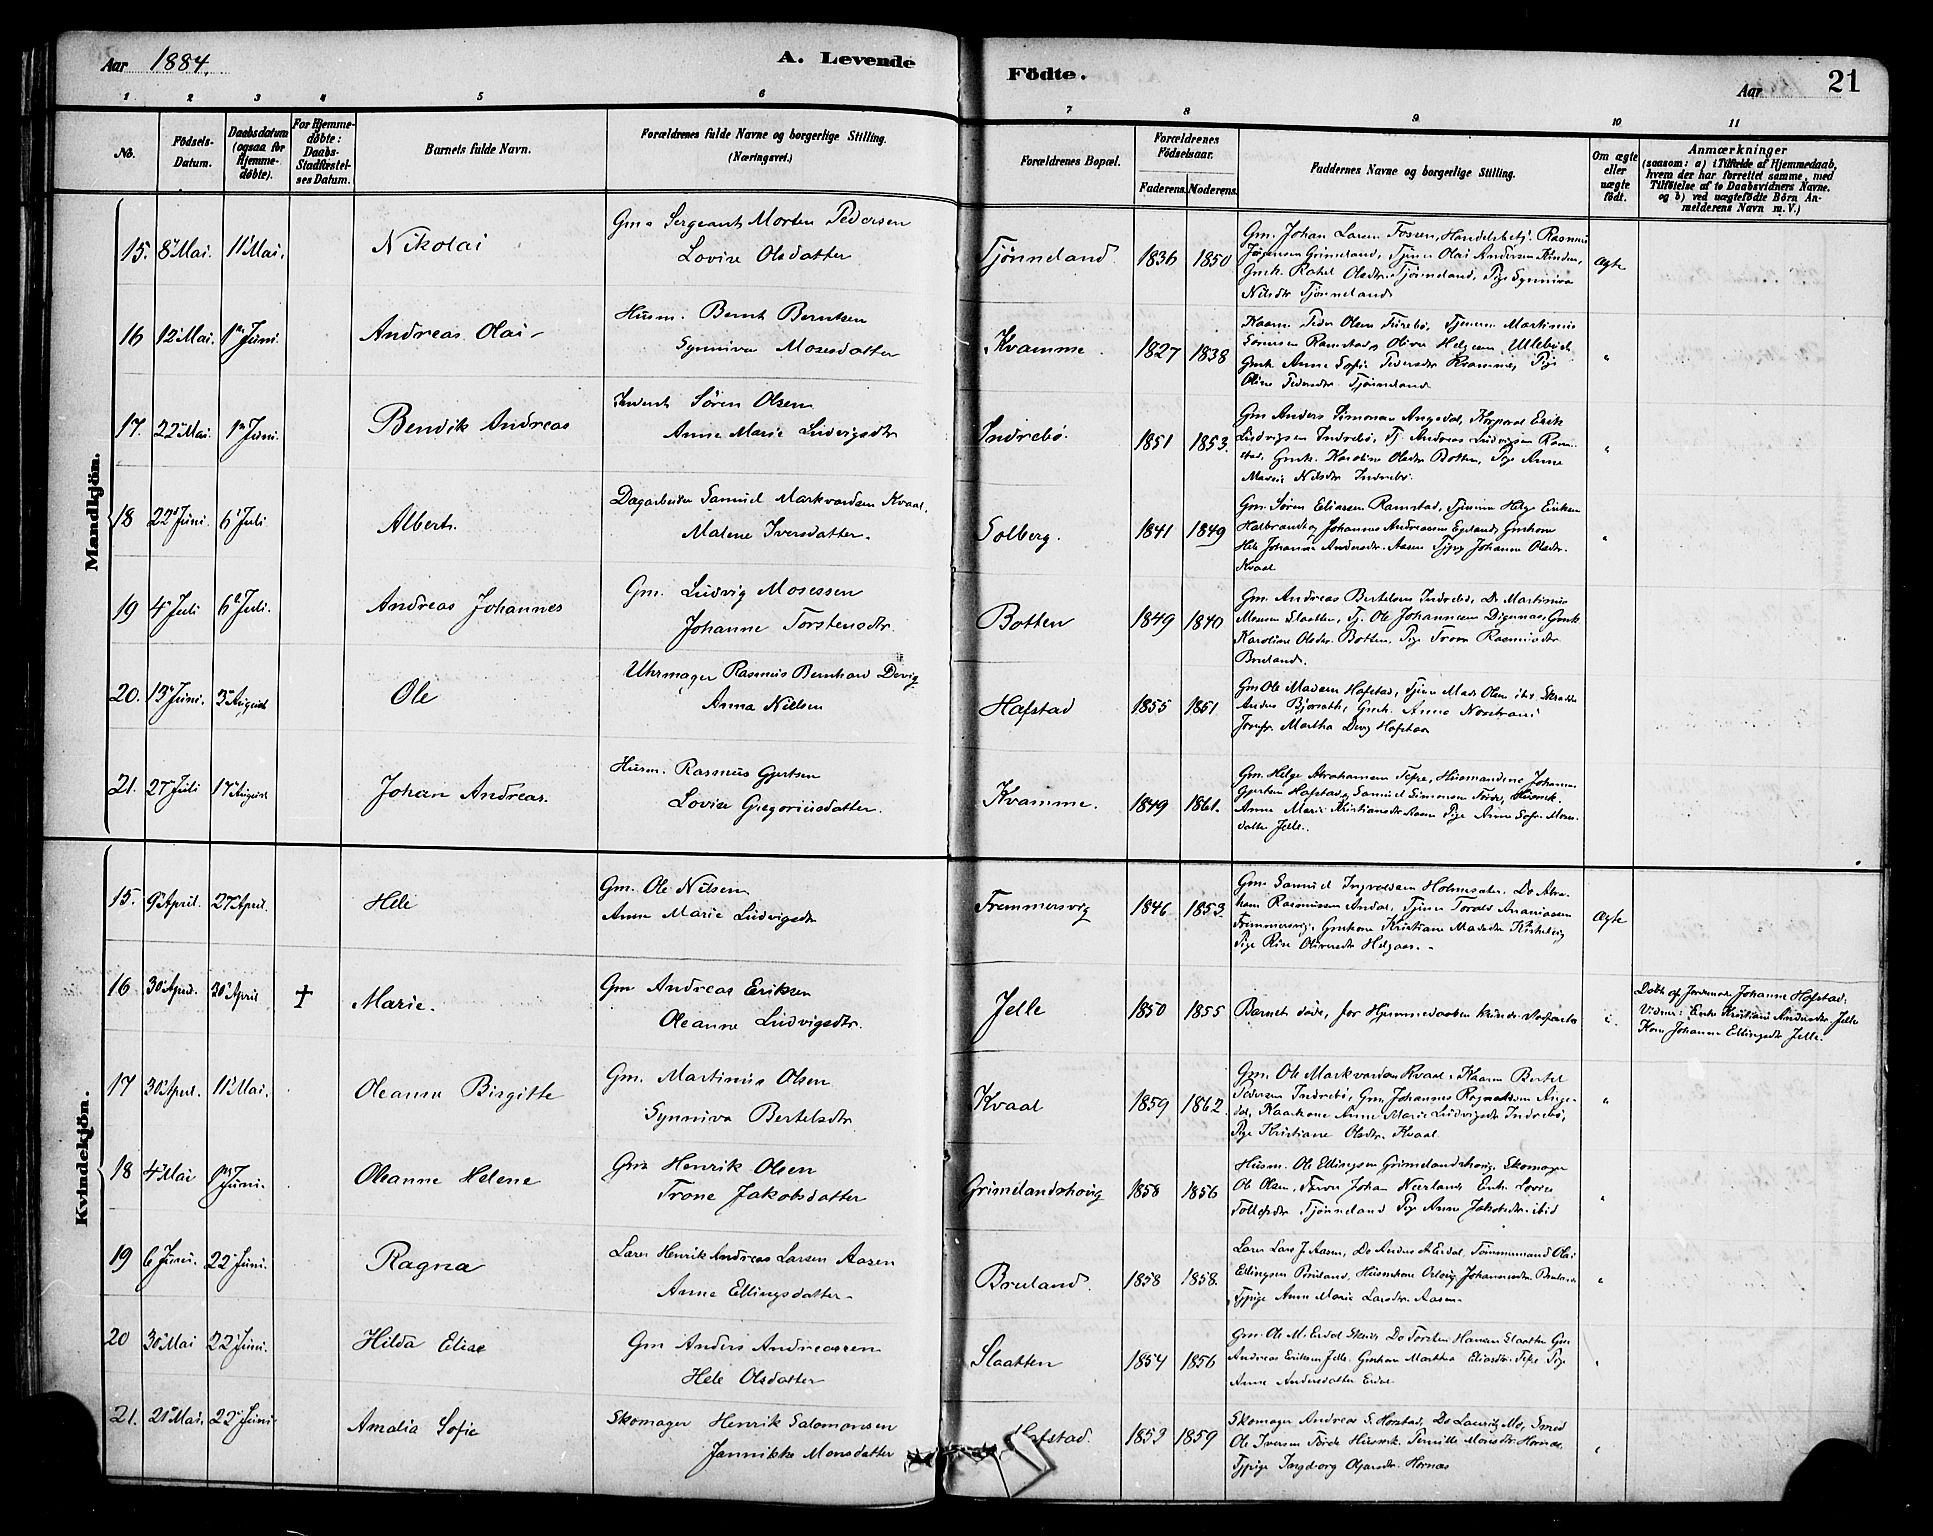 Aar 1884. A. Levende Födte. Aar 21
1 2 3 4 5 6 7 8 9 10 11
No. Födsels-Datum. Daabsdatum (ogsaa for Hjemme-døbte). For Hjemme-døbte: Daabs-Stadfæstel-ses Datum. Barnets fulde Navn. Forældrenes fulde Navne og borgerlige Stilling. (Næringsvei.) Forældrenes Bopæl. Forældrenes Fødselsaar. Faderens. Moderens. Faddernes Navne og borgerlige Stilling. Om ægte eller uægte født. Anmærkninger (saasom: a) i Tilfælde af Hjemmedaab, hvem der har forrettet samme, med Tilføielse af to Daabsvidners Navne. og b) ved uægtefødte Börn An-melderens Navn m. V.)
Mandkjön.
15. 8 Mai. 11 Mai. Nikolai Gm Sergeant Morten Pedersen
Lovise Olsdatter Tjønneland 1836 1850 Gm. Johan Larsen Fossen, Handelsbetj. Rasmus
Jørgensen Grimeland, Tjener Olai Andersen
Gmk. Rakel Olsdtr. Tjønneland, Pige Synniva
Nilsdtr Tjønneland Ægte
16 12 Mai. 1 Juni. Andreas Olai Husm. Bernt Berntsen
Synniva Mosesdatter Kvamme. 1827 1838 Kaarm. Peder Olsen Firebø, Tjenere Martinus
Sørensen Ramstad, Oliver Helgesen Ullebøel
Gmk. Anne Sofie Pedersdtr Kvamme, Pige
Oline Pedersdtr. Tjønneland "
17. 22 Mai. 1 Juni. Bendik Andreas Inderst Søren Olsen
Anne Marie Ludvigsdtr Indrebø. 1851 1853. Gm Anders Simonsen Angedal, Korporal Erik
Ludvigsen Indrebø, Tj. Andreas Ludvigsen Ram-
stad, Gmk. Karoline Olsdtr Botten, Pige Anne
Marie Nilsdtr Indrebø. "
18 22 Juni. 6 Juli Albert. Dagarbeider Samuel Markvardsen Kvaal.
Malene Iversdatter. Solberg. 1841 1849 Gm. Søren Eliassen Ramstad, Tjenere Helge Eriksen
Halbrend og Johannes Andreassen Egeland, Gmkone
Hele Johanne Andersdtr. Aasen Tjpig Johanne Olsdtr.
Kvaal "
19 4 Juli 6 Juli. Andreas Johannes Gm. Ludvig Mosessen
Johanne Torstensdtr. Botten 1849 1840 Gm. Andreas Bertelsen Indrebø, Do Martinus
Monsen Slaatten, Tj. Ole Johannesen Digernæs, Gmk
Karoline Olsdtr. Botten, Pige Trone Rasmusdtr
Bruland.
20. 13 Juni. 3 August Ole Uhrmager Rasmus Bernhard Devig
Anna Nielsen Hafstad 1855 1851. Gm Ole Madsen Hafstad, Tjener Mads Olsen ibid Skrædder
Anders Gmk. Anne
Jomfr. Martha Devig Hafstad
21. 27 Juli 17 August Johan Andreas. Husm. Rasmus Gjertsen
Lovise Gregoriusdatter. Kvamme. 1849 1861. Gm. Helge Abrahamsen Tefre, Husmændene Johannes
Gjertsen Hafstad, Samuel Simonsen Førde, Husmk.
Anne Marie Kristiansdtr Aasen Pige Anne Sofie Mons-
datter Jelle.
Kvindekjön.
15. 9 April. 27 April. Hele Gm. Ole Nilsen
Anne Marie Ludvigsdtr Fremmersvig 1846 1853. Gm. Samuel Ingvoldsen Holmesæter. Do Abra-
ham Rasmussen Andal, Tjener Torvald Ananiassen
Fremmersvig. Gmkone Kristiane Madsdtr
Pige Rise Oliversdtr Helgaas. - Ægte
16 30 April. 30 April † Marie. Gm Andreas Eriksen
Oleanne Ludvigsdtr. Jelle 1850 1855 Barnet døde, før Hjemmedaaben kunde stadfæstes ". Døbt af Jordemor Johanne Hafstad.
Vidner: Enke Kristiane Andersdtr Jelle
Kone Johanne Ellingsdtr Jelle.
17 30 April. 11 Mai. Oleanna Birgitte Gm. Martinus Olsen
Synniva Bertelsdtr. Kvaal 1859 1862. Gm. Ole Markvardsen Kvaal, Kaarm Bertel
Pedersen Indrebø, Gm. Johannes Rognaldsen Ange-
dal, Kaarkone Anne Marie Ludvigsdtr Indrebø,
Pige Kristiane Olsdtr. Kvaal "
18 4 Mai 1 Juni. Oleanne Helene Gm Henrik Olsen
Trone Jakobsdatter Grimelandshoug 1858 1856 Husm. Ole Ellingsen Grimelandshoug, Skomager
Ole Olsen, Johan Enke Lovise
Tollefsdtr Tjønneland Pige Anne Jakobsdtr ibid "
19 6 Juni. 22 Juni. Ragna Lærer Henrik Andreas Larsen Aasen
Anne Ellingsdatter. Bruland. 1858 1858. Lærer Lars J Aasen, Do Anders A Erdal, Tømmermand Olai
Ellingsen Bruland, Husmkone Johannesdtr. Bruland
Tjpige Anne Marie Larsdtr. Aasen. "
20 30 Mai 22 Juni. Hilda Elise Gm Anders Andreassen
Hele Olsdatter Slaatten 1854 1856 Gm. Ole M. Erdal Do Torsten Hansen Slaatten Gm
Andreas Eriksen Jelle. Gmkone Martha Eliasdtr. Tefre Pige
Anne Andersdatter Erdal "
21. 21 Mai. 22 Juni. Amalia Sofie Skomager Henrik Salomonsen
Jannikke Monsdatter Hafstad. 1852 1859 Skomager Andreas S. Horstad, Do Laurits Mo, Smed
Ole Iversen Førde Husmk. Pernille Monsdtr. Hornæs
Tjpige Ingeborg Hornæs "